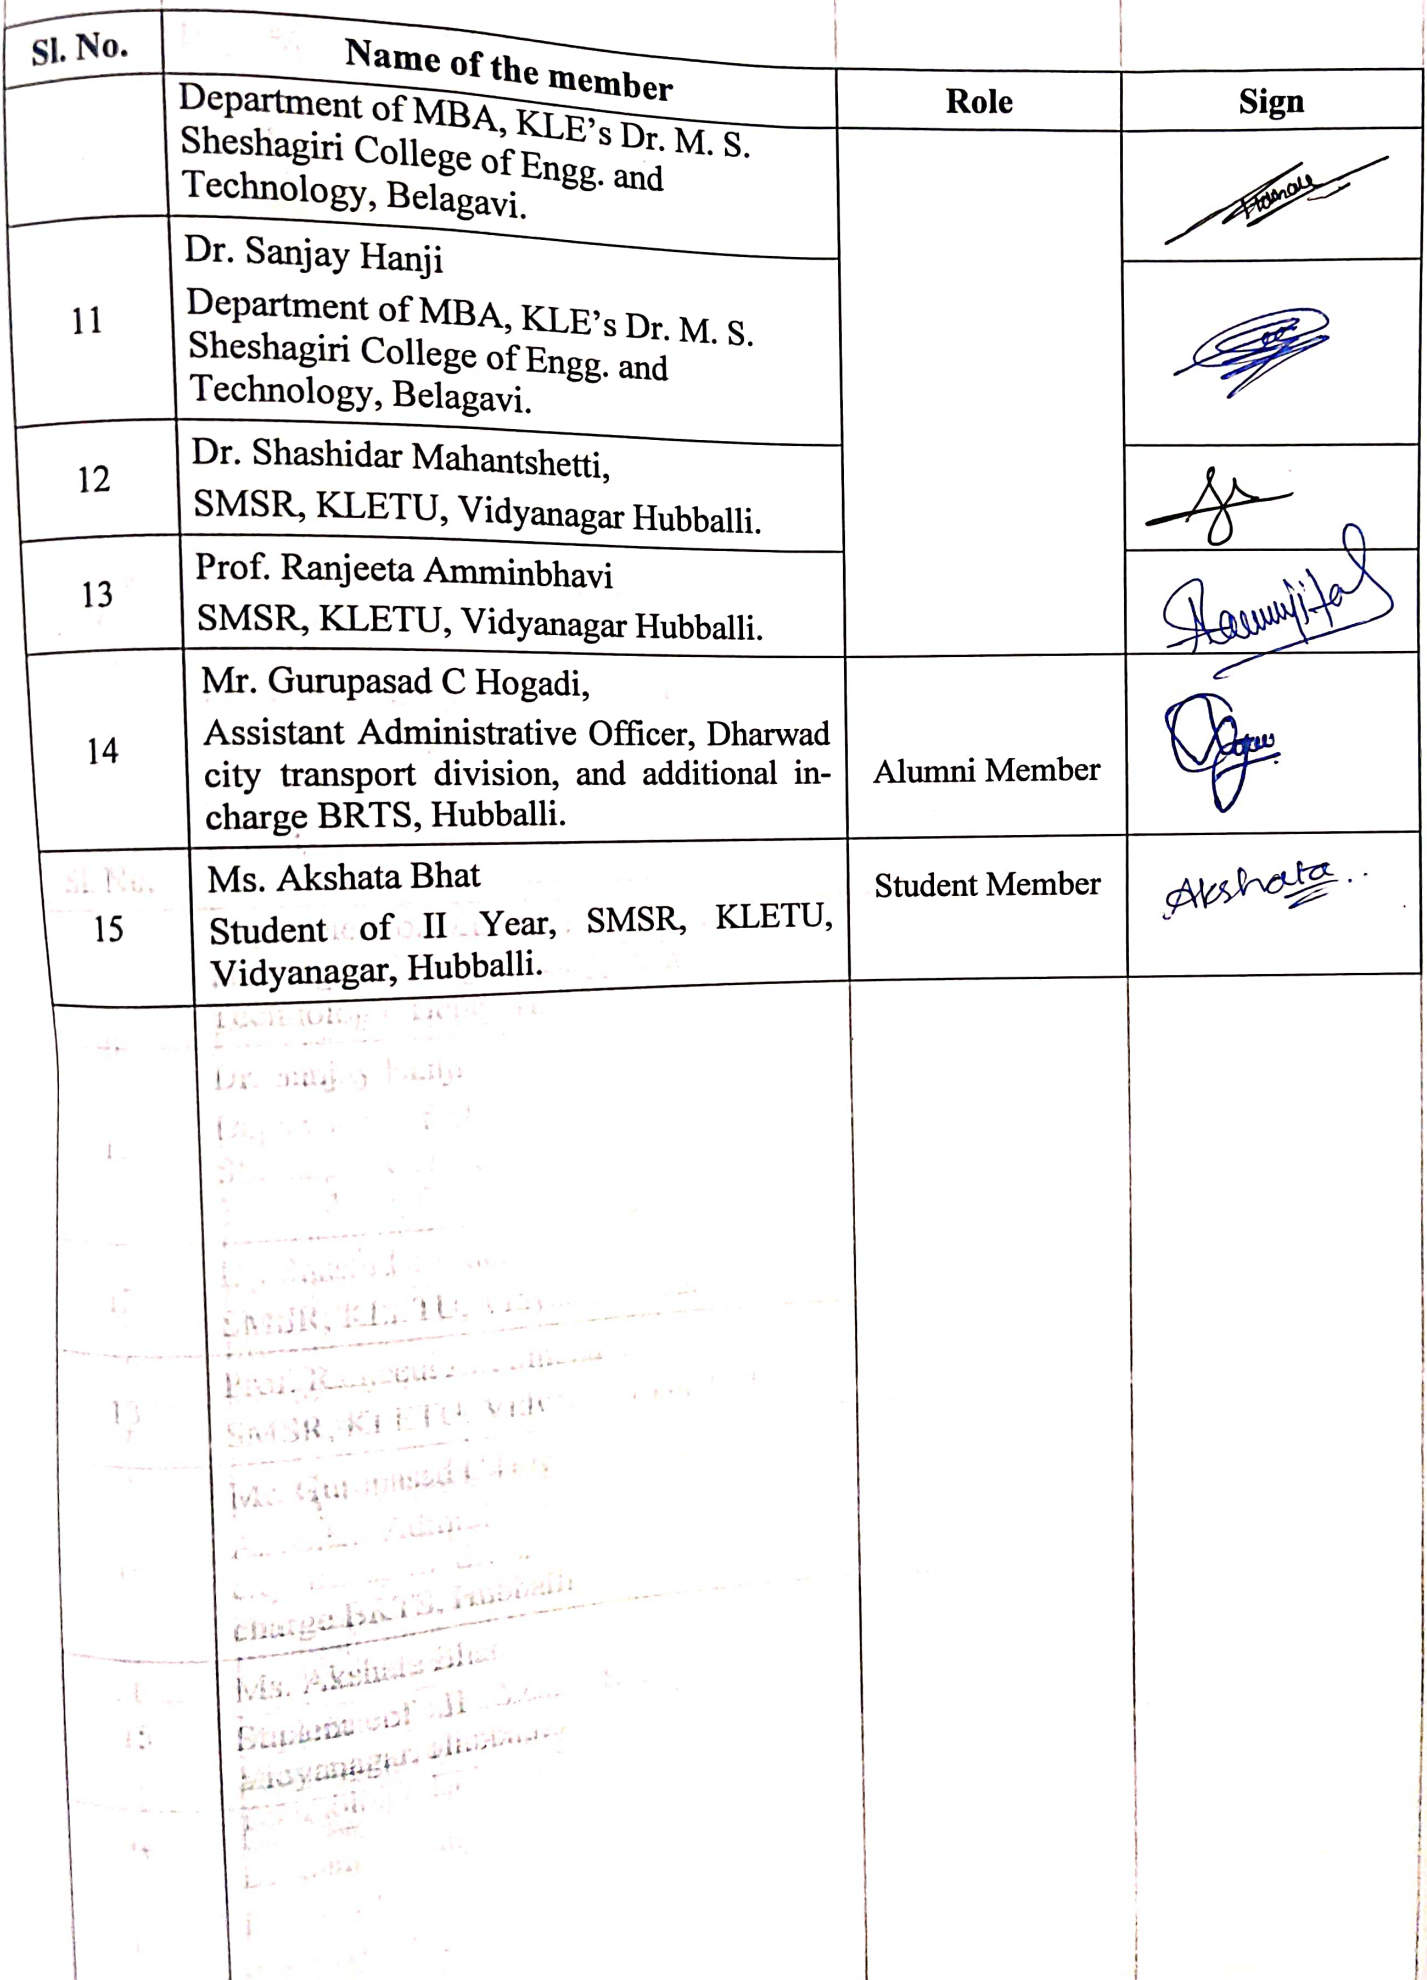 Sl. No. Name of the member Role Sign
Department of MBA, KLE's Dr. M. S.
Sheshagiri College of Engg. and
Technology, Belagavi.
11 Dr. Sanjay Hanji
Department of MBA, KLE's Dr. M. S.
Sheshagiri College of Engg. and
Technology, Belagavi.
12 Dr. Shashidar Mahantshetti,
SMSR, KLETU, Vidyanagar Hubballi.
13 Prof. Ranjeeta Amminbhavi
SMSR, KLETU, Vidyanagar Hubballi.
14 Mr. Gurupasad C Hogadi,
Assistant Administrative Officer, Dharwad
city transport division, and additional in-
charge BRTS, Hubballi.
Alumni Member
15 Ms. Akshata Bhat
Student of II Year, SMSR, KLETU,
Vidyanagar, Hubballi.
Student Member
Akshata..